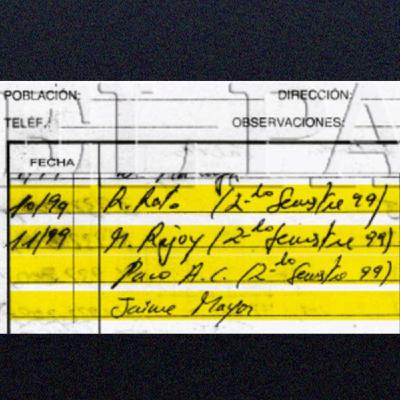 POBLACIÓN: DIRECCIÓN:
TELEF.: OBSERVACIONES:
FECHA
10/99 R. Rato (2-do Semestre 99)
11/99 M. Rajoy (2-do Semestre 99)
Paco A.C. (2-do Semestre 99)
Jaime Mayor